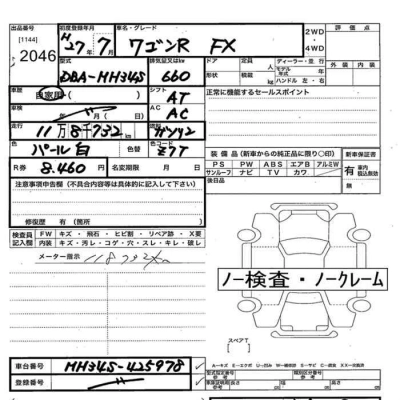 出品番号
[1144]
2046
初度登録年月
H27年7月
車名・グレード
ワゴンR FX
2WD
・
4WD
評価点
外装
内装
型式
DBA-MH34S
排気量又はkw
660
ドア
形状
定員
人
積載量
ディーラー・並行
モデル年式
年
車歴
自家用
シフト
AT
正常に機能するセールスポイント
車検
AC
AC
走行
11万8千732km
燃料
ガソリン
色
パール白
色替
色コード
Z7T
R券
8.460円
名変期限
月 日
装備品(新車からの純正品に限り〇印)
PS PW ABS エアB アルミW
サンルーフ ナビ TV カワ
新車保証書
有
車内
積込無効
注意事項申告欄(不具合内容等は具体的に記入して下さい)
修復歴 有(箇所)
検査員記入欄
FW
キズ・飛石・ヒビ割・リペア跡・X要
内装
キズ・汚レ・コゲ・穴・スレ・キレ・破レ
メーター指示
118732km
ノー検査・ノークレーム
スペアT
車台番号
MH34S-425978
登録番号